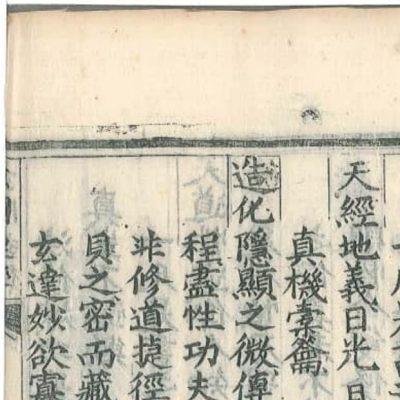 天經地義日光月
真機橐籥
造化隱顯之微傳
程盡性功夫
非修道捷徑
貝之密而藏
玄達妙欲寡